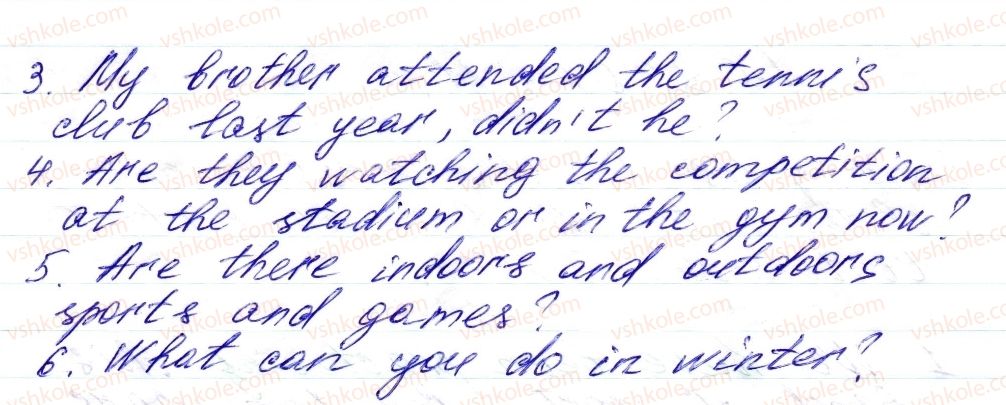 3. My brother attended the tennis
club last year, didn't he?
4. Are they watching the competition
at the stadium or in the gym now?
5. Are there indoors and outdoors
sports and games?
6. What can you do in winter?